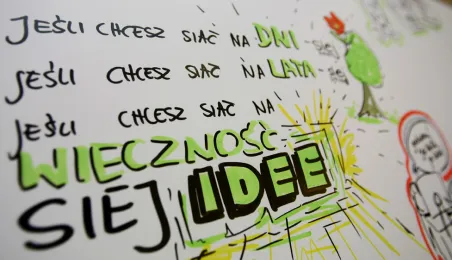 JEŚLI CHCESZ SIAĆ NA DNI
JEŚLI CHCESZ SIAĆ NA LATA
JEŚLI CHCESZ SIAĆ NA
WIECZNOŚĆ
SIEJ IDEE